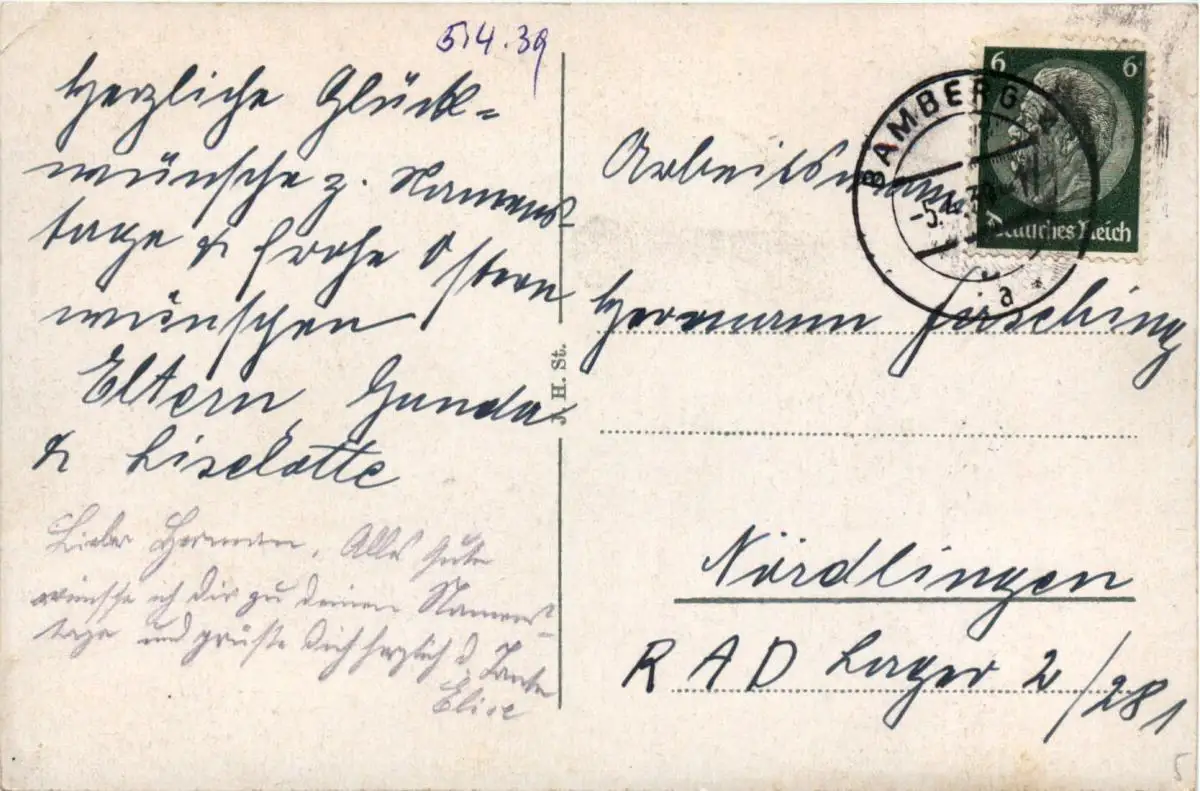 5.4.39
Herzliche Glück-
wünsche z. Namens-
tage & frohe Ostern
wünschen
Eltern, Gunda
& Liselotte
Lieber Herman. Alles Gute
wünsche ich dir zu deinen Namens-
tage und grüßte dich herzlich d. Tante
Elise
J. H. St.
6 6
Deutsches Reich
BAMBERG
-5.4.39
a
Arbeitsmann
Hermann Fasching
Nördlingen
R A D Lager 2/281
5